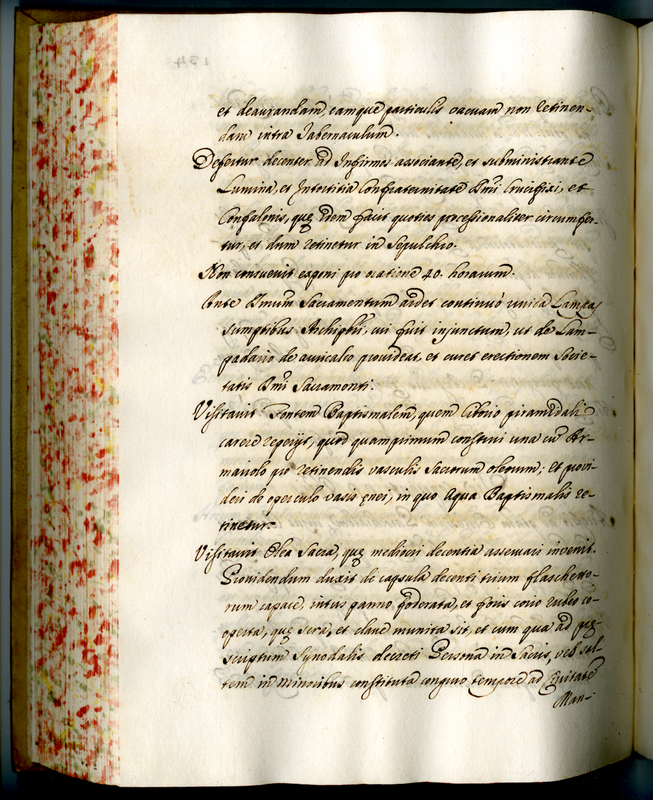 et deaurandam, eamque particulis vacuam non retinen-
dam intra Tabernaculum.
Defertur decenter ad Infirmos associante, et subministrante
Lumina, et Intortitia Confraternitate Smi Crucifixi, et
Confalonis, quę idem facit quoties processionaliter circumfer-
tur, et dum retinetur in Sepulchro.
Non consuevit exponi pro oratione 40. horarum.
Ante Smum Sacramentum ardet continuò unica Lampas
sumptibus Archipbri, cui fuit injunctum, ut de Lam-
padario de auricalco provideat, et curet erectionem Socie-
tatis Smi Sacramenti.
Visitavit Fontem Baptismalem, quem Ciborio piramidali
carere reperijt, quod quamprimum construi una cum Ar-
mariolo pro retinendis vasculis Sacrorum oleorum; et provi-
deri de operculo vasis ęnei, in quo Aqua Baptismalis re-
tinetur.
Visitavit Olea Sacra, quę mediocri decentia asservari invenit.
Providendum duxit de capsula decenti trium flaschetto-
rum capace, intus panno foderata, et foris corio rubeo co-
operta, quę sera, et clave munita sit, et cum qua ad pręs-
scriptum Synodalis decreti Persona in Sacris, vel sal-
tem in Minoribus constituta congruo tempore ad Civitatem
Man-